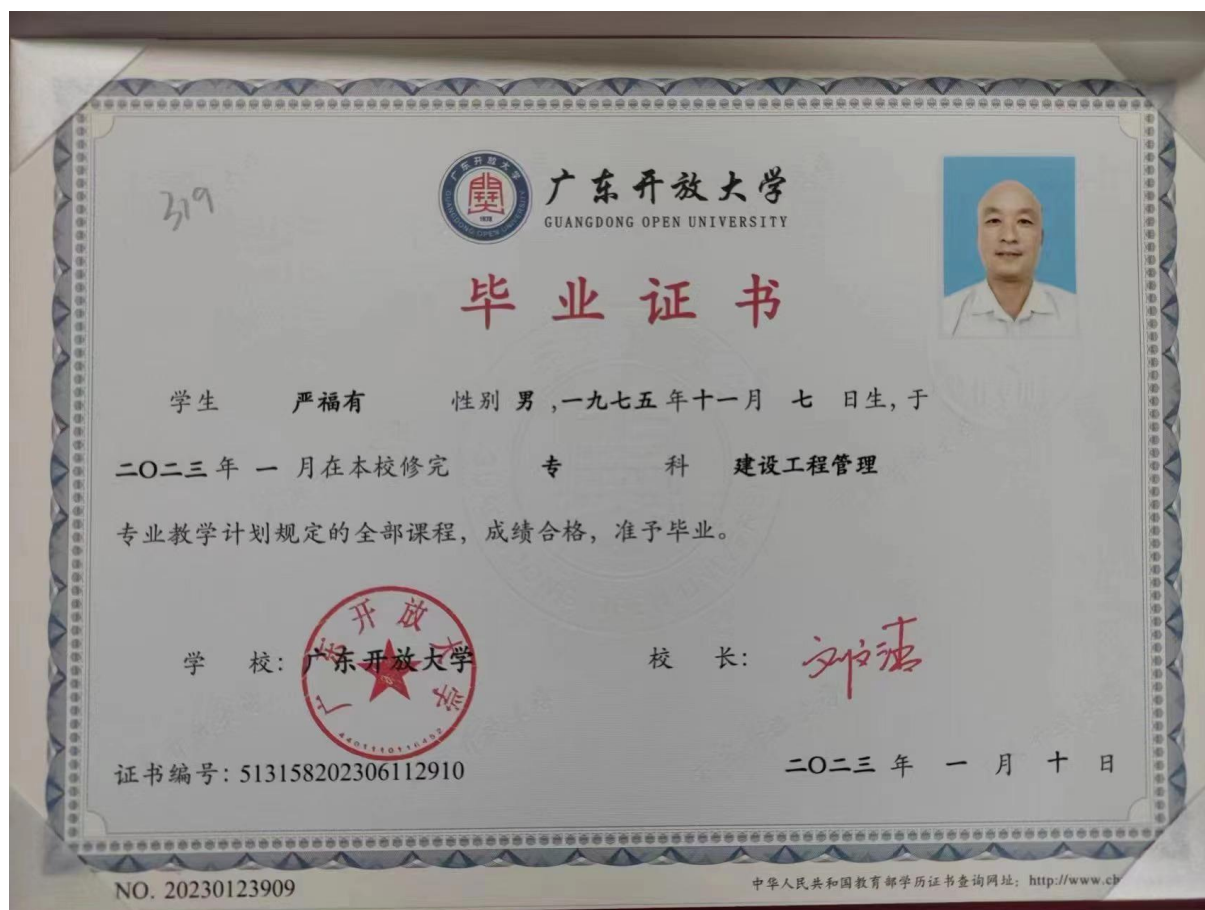 319
广东开放大学
GUANGDONG OPEN UNIVERSITY
毕业证书
学生 严福有 性别 男 ,一九七五 年十一月 七 日生, 于
二〇二三 年 一 月在本校修完 专 科 建设工程管理
专业教学计划规定的全部课程, 成绩合格, 准予毕业。
学 校: 广东开放大学 校 长:
广东开放大学
证书编号: 513158202306112910
二〇二三 年 一 月 十 日
NO. 20230123909
中华人民共和国教育部学历证书查询网址: http://www.ch